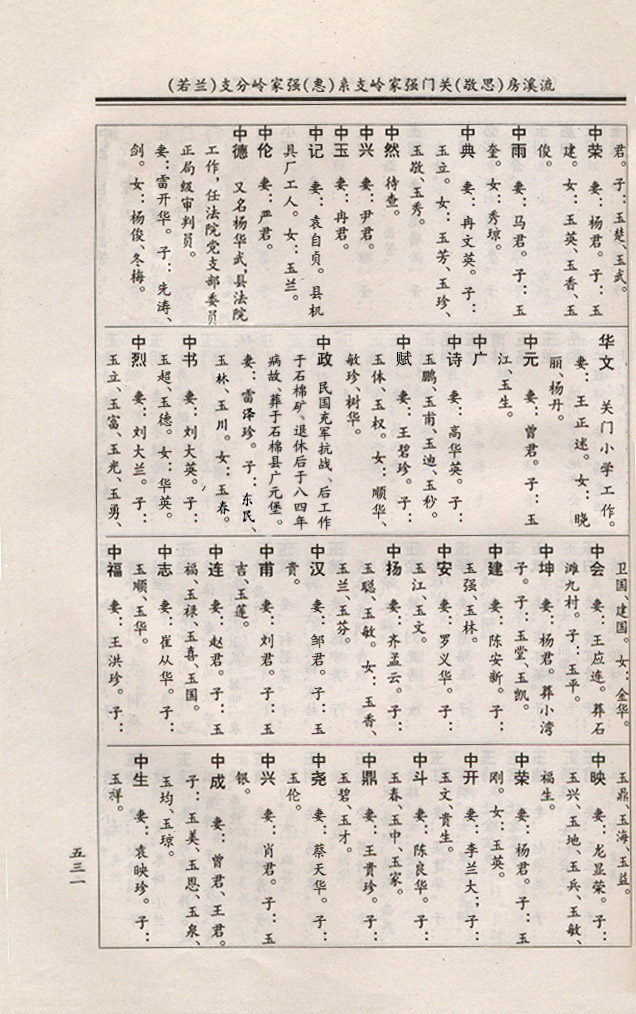 流溪房(敬思)关门强家岭支系(惠)强家岭分支(若兰)
君。子：玉楚、玉武。
中荣 妻：杨君。子：玉
建。女：玉英、玉香、玉
俊。
中雨 妻：马君。子：玉
奎。女：秀琼。
中典 妻：冉文英。子：
玉立。女：玉芳、玉珍、
玉敏、玉秀。
中然 待查。
中兴 妻：尹君。
中玉 妻：冉君。
中记 妻：袁自贞。县机
具厂工人。女：玉兰。
中伦 妻：严君。
中德 又名杨华武,县法院
工作，任法院党支部委员
正局级审判员。
妻：雷开华。子：先涛、
剑。女：杨俊、冬梅。
华文 关门小学工作。
妻：王正述。女：晓
丽、杨丹。
中元 妻：曾君。子：玉
江、玉生。
中广
中诗 妻：高华英。子：
玉鹏、玉甫、玉迪、玉秒。
中赋 妻：王碧珍。子：
玉体、玉权。女：顺华、
敏珍、树华。
中政 民国充军抗战、后工作
于石棉矿、退休后于八四年
病故、葬于石棉县广元堡。
妻：雷泽珍。子：东民、
玉林、玉川。女：玉春。
中书 妻：刘大英。子：
玉超、玉德。女：华英。
中烈 妻：刘大兰。子：
玉立、玉富、玉光、玉勇、
卫国、建国。女：金华。
中会 妻：王应连。葬石
滩九村。子：玉平。
中坤 妻：杨君。葬小湾
子。子：玉堂、玉凯。
中建 妻：陈安新。子：
玉强、玉林。
中安 妻：罗义华。子：
玉江、玉文。
中扬 妻：齐孟云。子：
玉聪、玉敏。女：玉香、
玉兰、玉芬。
中汉 妻：邹君。子：玉
贵。
中甫 妻：刘君。子：玉
吉、玉莲。
中连 妻：赵君。子：玉
福、玉禄、玉喜、玉国。
中志 妻：崔从华。子：
玉顺、玉华。
中福 妻：王洪珍。子：
玉鼎、玉海、玉益。
中映 妻：龙显荣。子：
玉兴、玉地、玉兵、玉敏、
福生。
中荣 妻：杨君。子：玉
刚。女：玉英。
中开 妻：李兰大；子：
玉文、贵生。
中斗 妻：陈良华。子：
玉春、玉中、玉家。
中鼎 妻：王贵珍。子：
玉碧、玉才。
中尧 妻：蔡天华。子：
玉伦。
中兴 妻：肖君。子：玉
银。
中成 妻：曾君、王君。
子：玉美、玉恩、玉泉、
玉均、玉琼。
中生 妻：袁映珍。子：
玉祥。
五三一